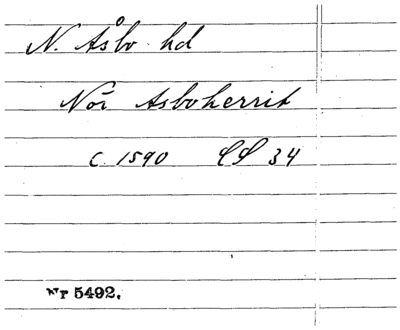 N. Åsbo hd
Nör Asboherrit
c. 1590 SS 34
Nr 5492.